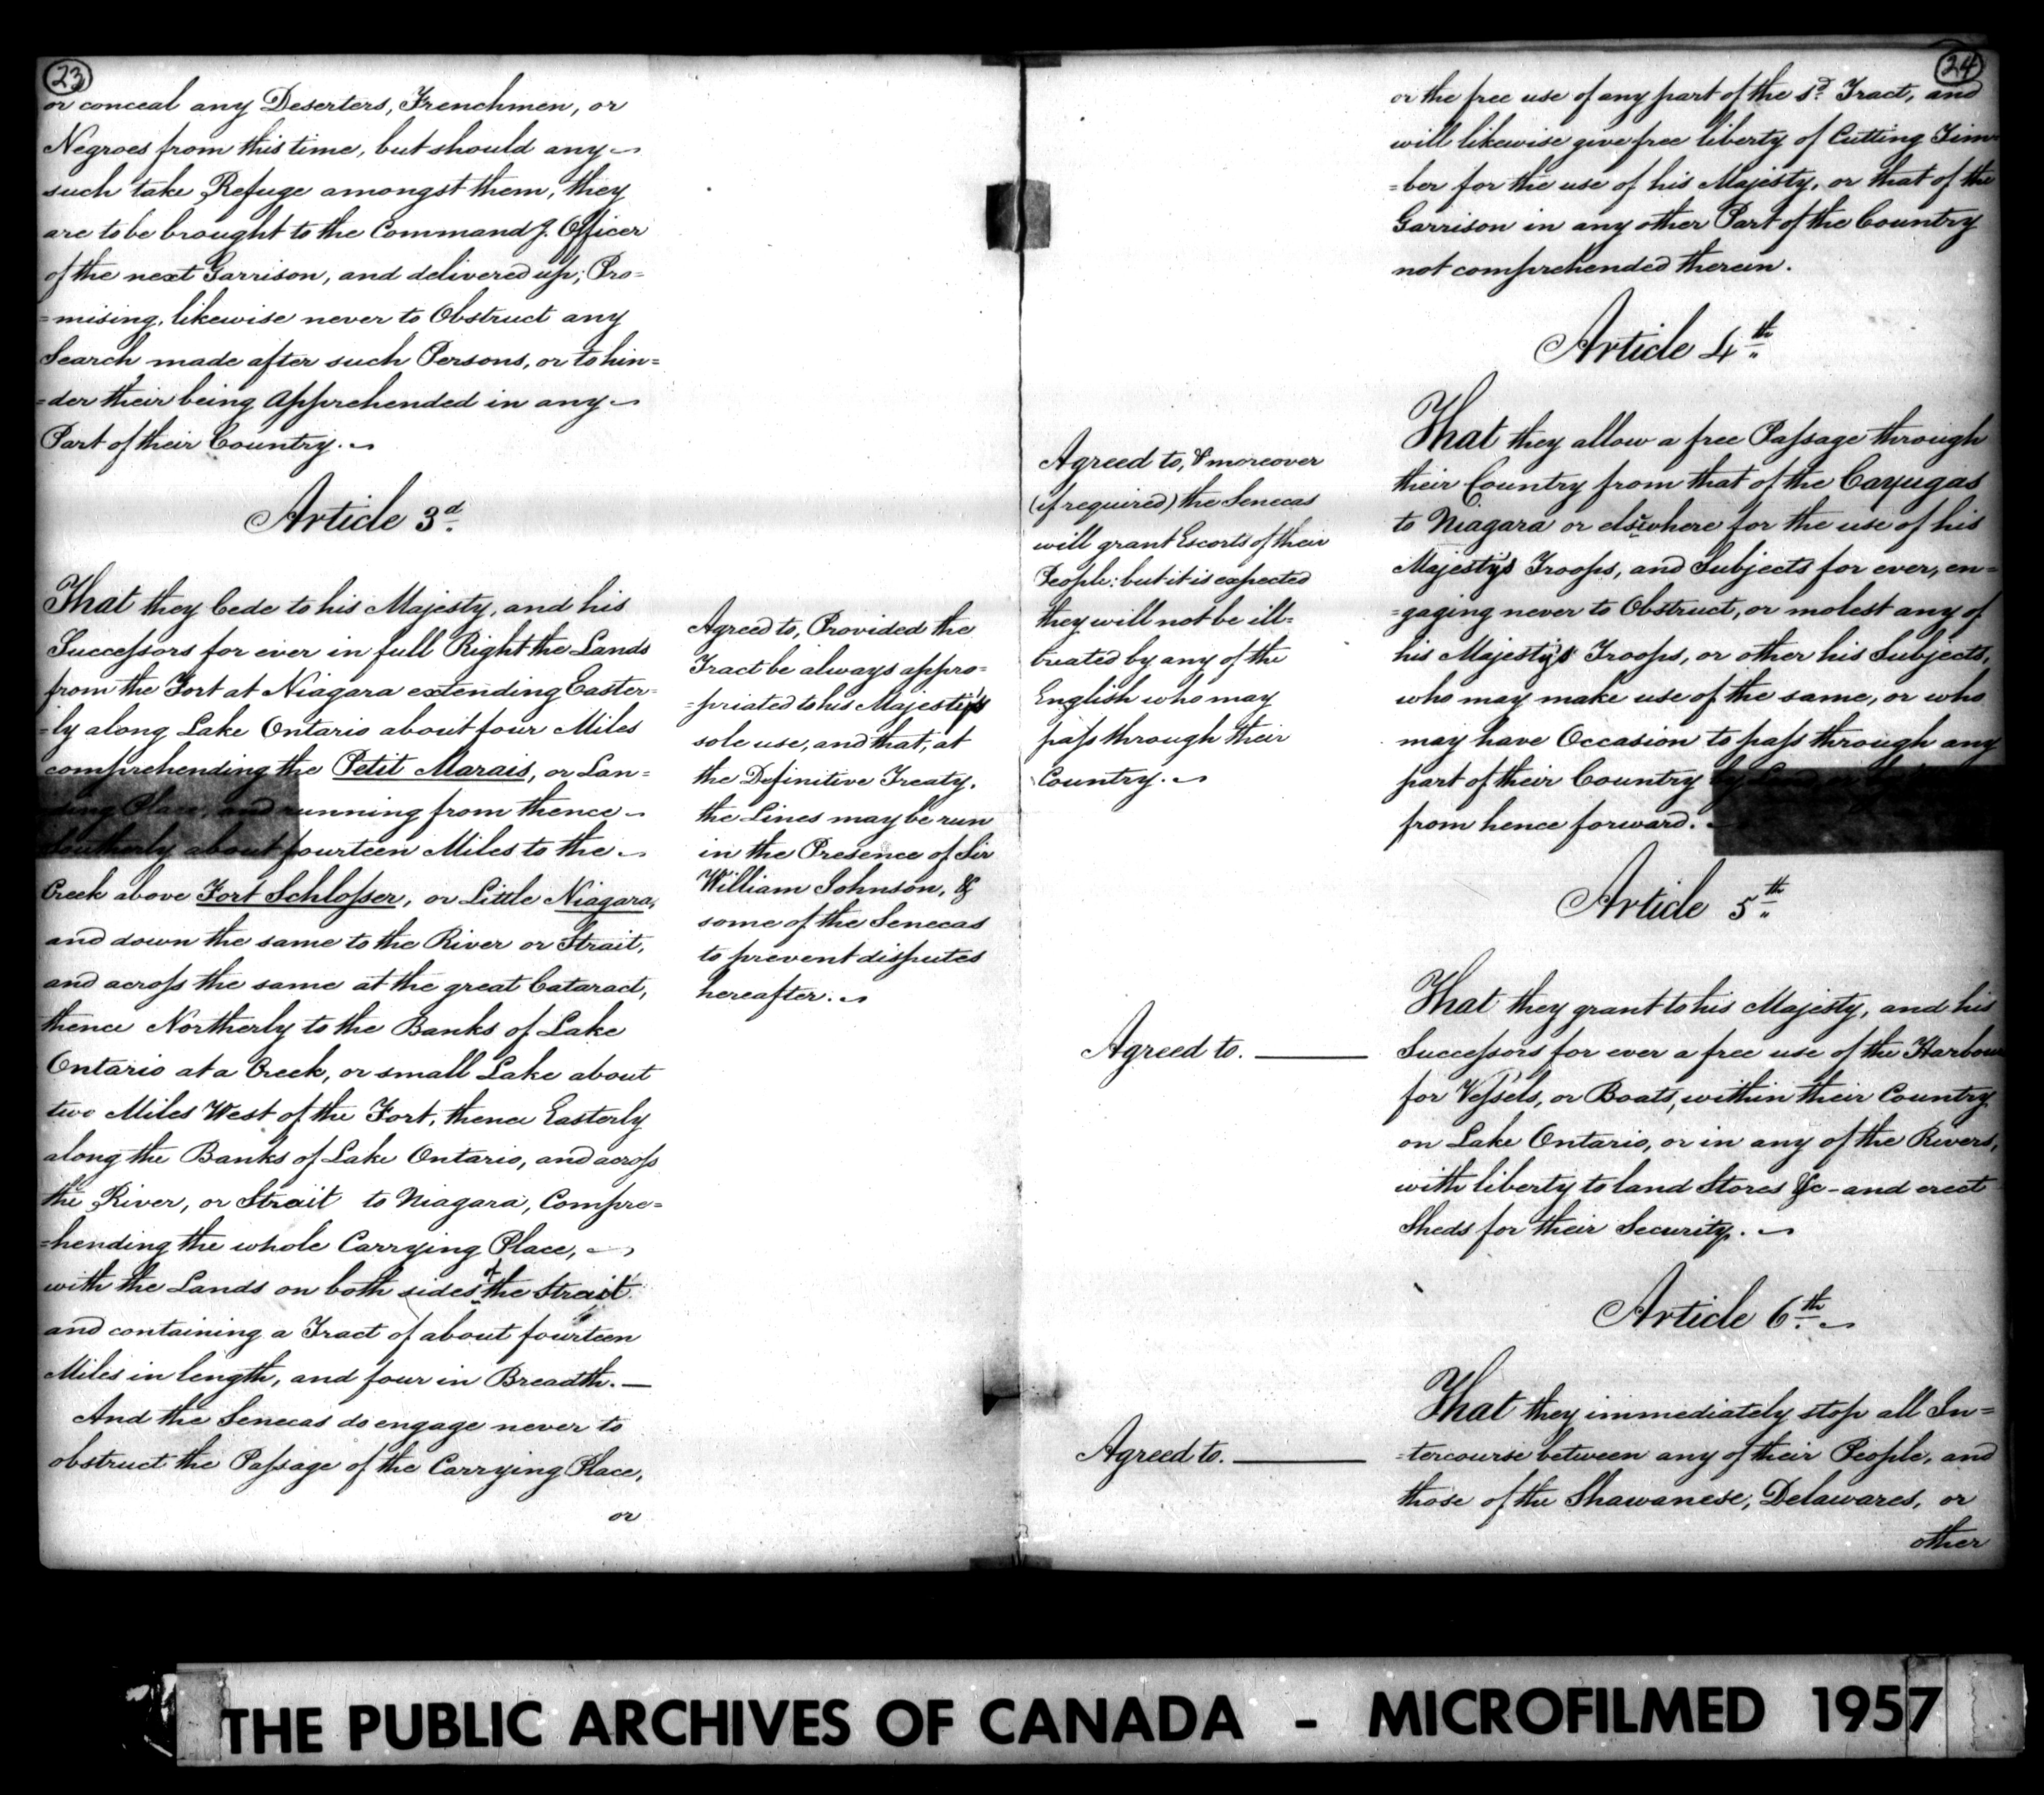 23
or conceal any Deserters, Frenchmen, or
Negroes from this time, but should any
such take Refuge amongst them, they
are to be brought to the Command.g Officer
of the next Garrison, and delivered up; Pro=
=mising, likewise never to Obstruct any
Search made after such Persons, or to hin=
=der their being Apprehended in any
Part of their Country.
Article 3.d
That they Cede to his Majesty, and his
Successors for ever in full Right the Lands
from the Fort at Niagara extending Easter=
=ly along Lake Ontario about four Miles
comprehending the Petit Marais, or Lan=
=ding Place, and running from thence
Southerly about fourteen Miles to the
Creek above Fort Schlosser, or Little Niagara,
and down the same to the River or Strait,
and across the same at the great Cataract,
thence Northerly to the Banks of Lake
Ontario at a Creek, or small Lake about
two Miles West of the Fort, thence Easterly
along the Banks of Lake Ontario, and across
the River, or Strait to Niagara, Compre=
=hending the whole Carrying Place,
with the Lands on both sides of the Strait
and containing a Tract of about fourteen
Miles in length, and four in Breadth. —
And the Senecas do engage never to
obstruct the Passage of the Carrying Place,
or
Agreed to, Provided the
Tract be always appro=
=priated to his Majesty's
sole use, and that, at
the Definitive Treaty,
the Lines may be run
in the Presence of Sir
William Johnson, &
some of the Senecas
to prevent disputes
hereafter.
24
or the free use of any part of the s.d Tract, and
will likewise give free liberty of Cutting Tim
=ber for the use of his Majesty, or that of the
Garrison in any other Part of the Country
not comprehended therein.
Article 4.th
That they allow a free Passage through
their Country from that of the Cayugas
to Niagara or elsewhere for the use of his
Majesty's Troops, and Subjects for ever, en=
=gaging never to Obstruct, or molest any of
his Majesty's Troops, or other his Subjects,
who may make use of the same, or who
may have Occasion to pass through any
part of their Country by Land
from hence forward.
Agreed to, & moreover
(if required) the Senecas
will grant Escorts of their
People: but it is expected
they will not be ill=
treated by any of the
English who may
pass through their
Country.
Article 5.th
That they grant to his Majesty, and his
Successors for ever a free use of the Harbours
for Vessels, or Boats, within their Country
on Lake Ontario, or in any of the Rivers,
with liberty to land Stores &c - and erect
Sheds for their Security.
Agreed to. ———
Article 6.th
That they immediately stop all In=
=tercourse between any of their People, and
those of the Shawanese, Delawares, or
other
Agreed to. ———
THE PUBLIC ARCHIVES OF CANADA - MICROFILMED 1957